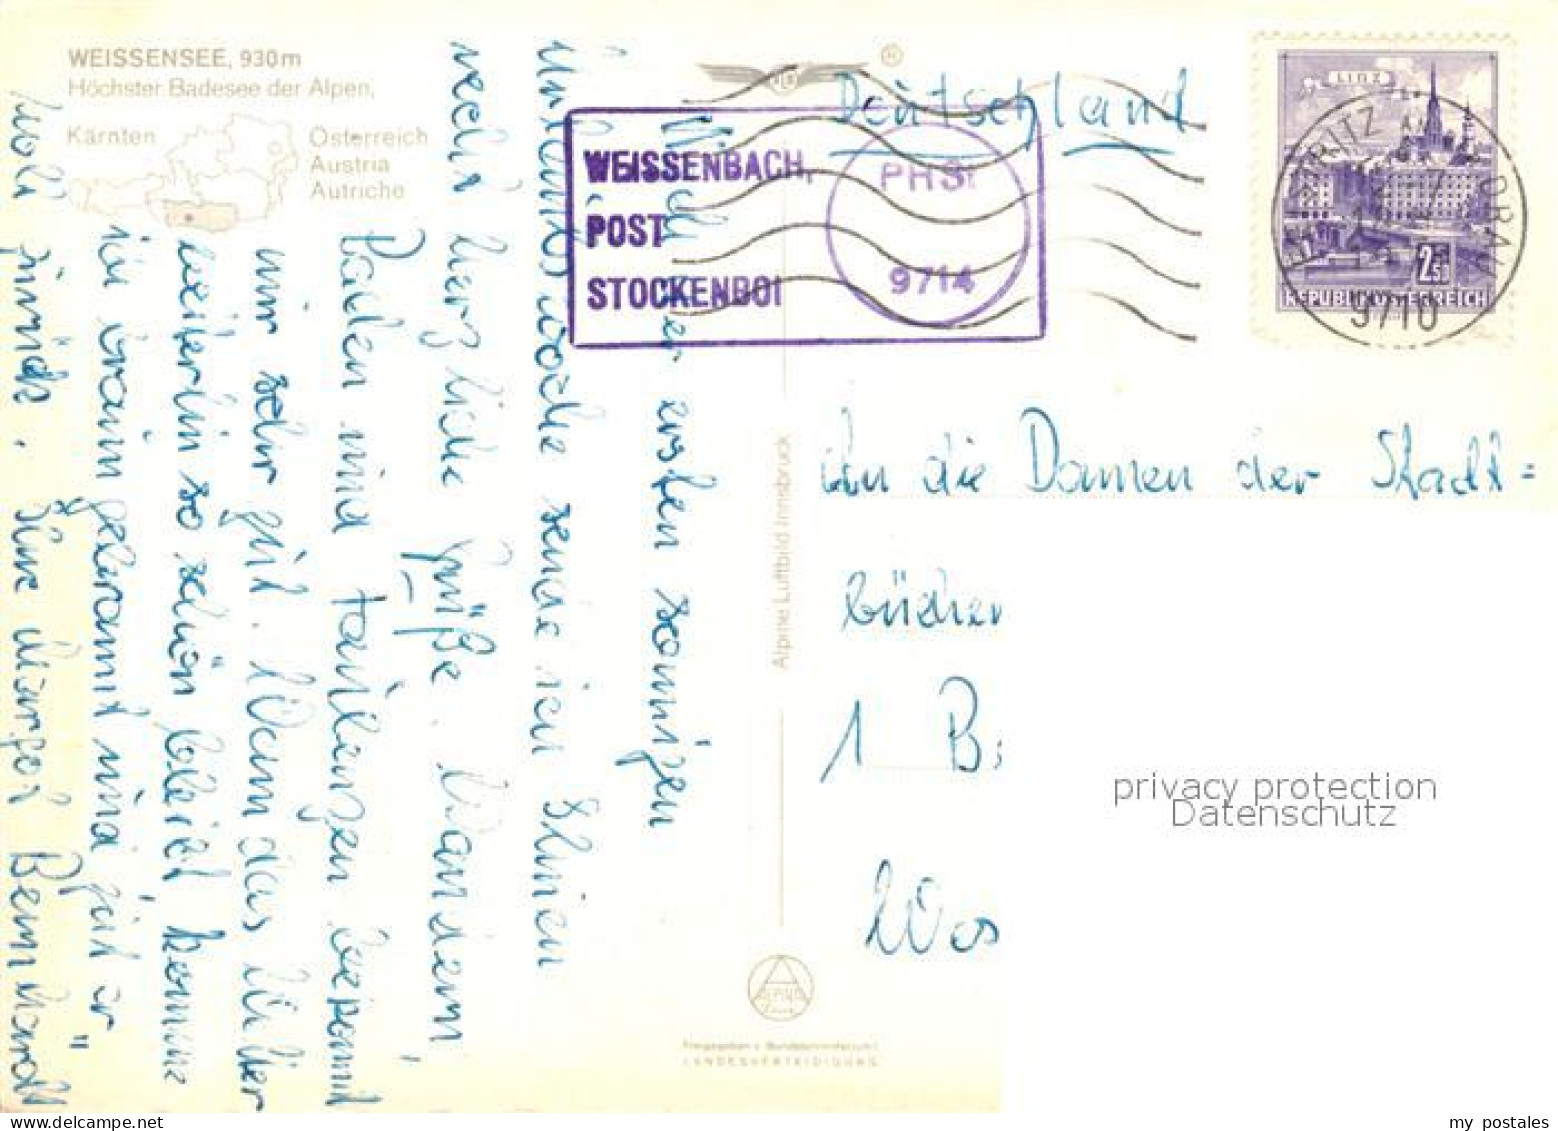 WEISSENSEE, 930m
Höchster Badesee der Alpen,
Kärnten
Österreich
Austria
Autriche
Nach der ersten sonnigen
Urlaubswoche sende ich Ihnen
recht herzliche Grüße. Wandern,
Baden und faulenzen bekommt
mir sehr gut. Wenn das Wetter
weiterhin so schön bleibt komme
ich braun gebrannt und gut er-
holt zurück. Ihre Margot Bernhardt
WEISSENBACH,
POST
STOCKENBOI
PHSt
9714
Deutschland
LINZ
2.50
REPUBLIK ÖSTERREICH
9710
An die Damen der Stadt=
bücher
1 B
Wos
Alpine Luftbild Innsbruck
Freigegeben v. Bundesministerium f.
LANDESVERTEIDIGUNG
privacy protection
Datenschutz
www.delcampe.net
my_postales